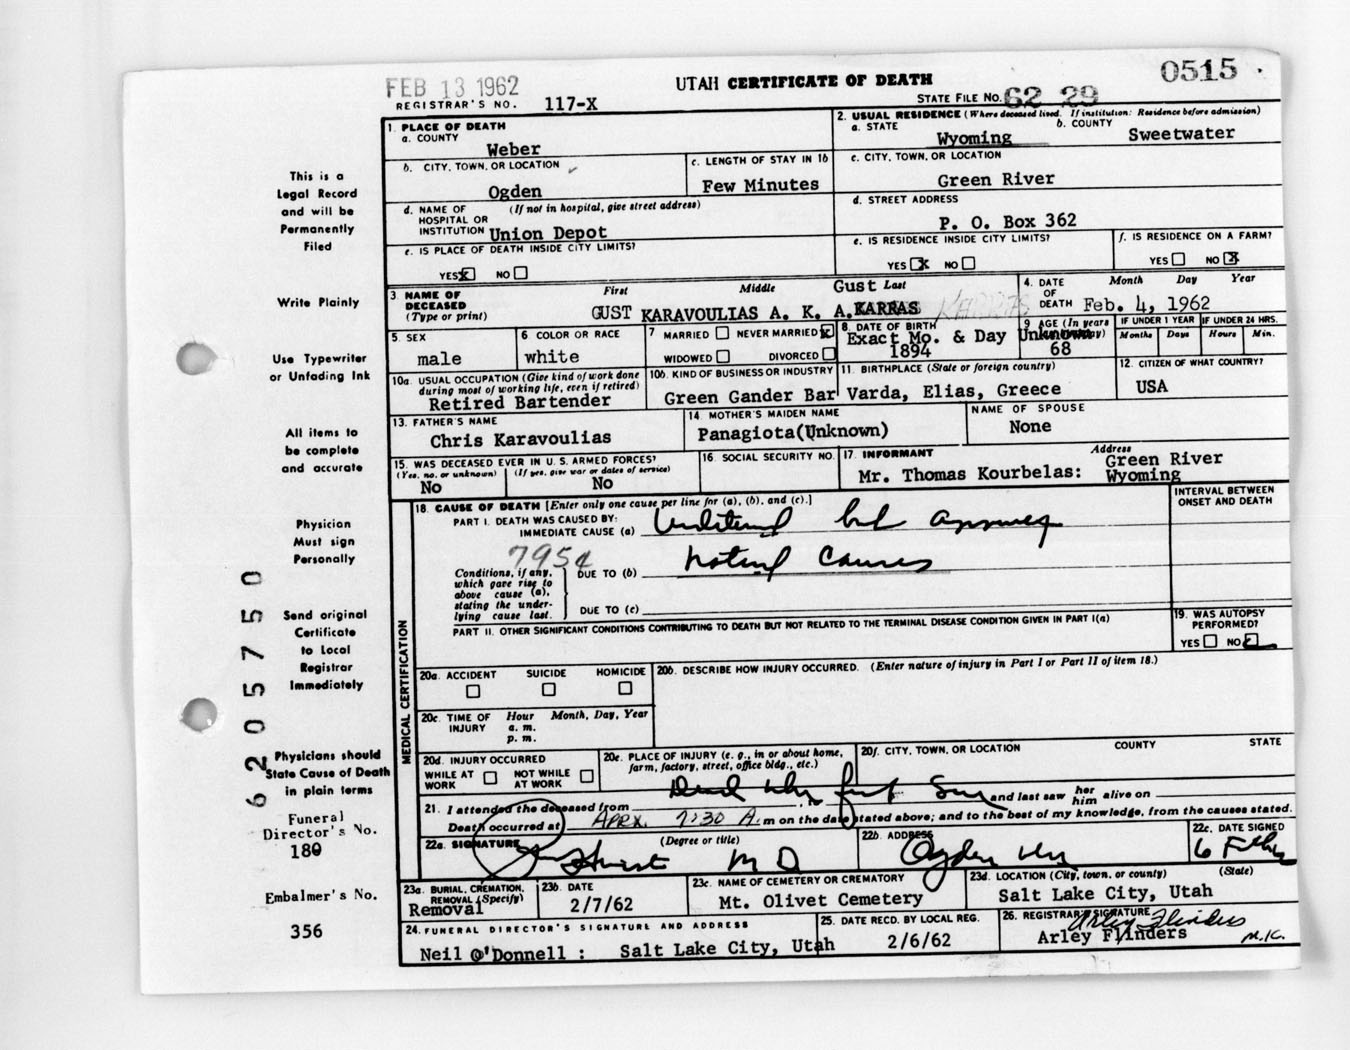 FEB 13 1962
UTAH CERTIFICATE OF DEATH
0515
REGISTRAR'S NO. 117-X
STATE FILE NO. 62 29
This is a
Legal Record
and will be
Permanently
Filed
Write Plainly
Use Typewriter
or Unfading Ink
All items to
be complete
and accurate
Physician
Must sign
Personally
Send original
Certificate
to Local
Registrar
Immediately
Physicians should
State Cause of Death
in plain terms
Funeral
Director's No.
180
Embalmer's No.
356
62 05 7 50
1. PLACE OF DEATH
a. COUNTY
Weber
2. USUAL RESIDENCE (Where deceased lived. If institution: Residence before admission)
a. STATE Wyoming b. COUNTY Sweetwater
b. CITY, TOWN, OR LOCATION
Ogden
c. LENGTH OF STAY IN 1b
Few Minutes
c. CITY, TOWN, OR LOCATION
Green River
d. NAME OF HOSPITAL OR INSTITUTION (If not in hospital, give street address)
Union Depot
d. STREET ADDRESS
P. O. Box 362
e. IS PLACE OF DEATH INSIDE CITY LIMITS?
YES X NO
e. IS RESIDENCE INSIDE CITY LIMITS?
YES X NO
f. IS RESIDENCE ON A FARM?
YES NO X
3. NAME OF DECEASED (Type or print)
First Middle Gust Last
GUST KARAVOULIAS A. K. A. KARRAS KARRAS
4. DATE OF DEATH Month Day Year
Feb. 4, 1962
5. SEX
male
6 COLOR OR RACE
white
7 MARRIED NEVER MARRIED X
WIDOWED DIVORCED
8. DATE OF BIRTH
Exact Mo. & Day Unknown
1894
9 AGE (In years
68
IF UNDER 1 YEAR
Months Days
IF UNDER 24 HRS.
Hours Min.
10a. USUAL OCCUPATION (Give kind of work done during most of working life, even if retired)
Retired Bartender
10b. KIND OF BUSINESS OR INDUSTRY
Green Gander Bar
11. BIRTHPLACE (State or foreign country)
Varda, Elias, Greece
12. CITIZEN OF WHAT COUNTRY?
USA
13. FATHER'S NAME
Chris Karavoulias
14 MOTHER'S MAIDEN NAME
Panagiota(Unknown)
NAME OF SPOUSE
None
15. WAS DECEASED EVER IN U. S. ARMED FORCES?
(Yes, no, or unknown) (If yes, give war or dates of service)
No No
16. SOCIAL SECURITY NO.
17. INFORMANT Address
Mr. Thomas Kourbelas: Green River Wyoming
MEDICAL CERTIFICATION
18. CAUSE OF DEATH [Enter only one cause per line for (a), (b), and (c).]
INTERVAL BETWEEN ONSET AND DEATH
PART I. DEATH WAS CAUSED BY:
IMMEDIATE CAUSE (a)
7954
Conditions, if any, which gave rise to above cause (a), stating the underlying cause last.
DUE TO (b) Natural Causes
DUE TO (c)
PART II. OTHER SIGNIFICANT CONDITIONS CONTRIBUTING TO DEATH BUT NOT RELATED TO THE TERMINAL DISEASE CONDITION GIVEN IN PART I(a)
19. WAS AUTOPSY PERFORMED?
YES NO
20a. ACCIDENT SUICIDE HOMICIDE
20b. DESCRIBE HOW INJURY OCCURRED. (Enter nature of injury in Part I or Part II of item 18.)
20c. TIME OF INJURY Hour Month, Day, Year
a. m.
p. m.
20d. INJURY OCCURRED
WHILE AT WORK NOT WHILE AT WORK
20e. PLACE OF INJURY (e. g., in or about home, farm, factory, street, office bldg., etc.)
20f. CITY, TOWN, OR LOCATION COUNTY STATE
21. I attended the deceased from Dead when first seen and last saw her him alive on
Death occurred at APRX. 7:30 A. m on the date stated above; and to the best of my knowledge, from the causes stated.
22a. SIGNATURE (Degree or title)
M D
22b. ADDRESS
Ogden
22c. DATE SIGNED
6 Feb
23a. BURIAL, CREMATION, REMOVAL (Specify)
Removal
23b. DATE
2/7/62
23c. NAME OF CEMETERY OR CREMATORY
Mt. Olivet Cemetery
23d. LOCATION (City, town, or county) (State)
Salt Lake City, Utah
24. FUNERAL DIRECTOR'S SIGNATURE AND ADDRESS
Neil O'Donnell : Salt Lake City, Utah
25. DATE RECD. BY LOCAL REG.
2/6/62
26. REGISTRAR'S SIGNATURE
Arley Flinders
Arley Flinders M.K.